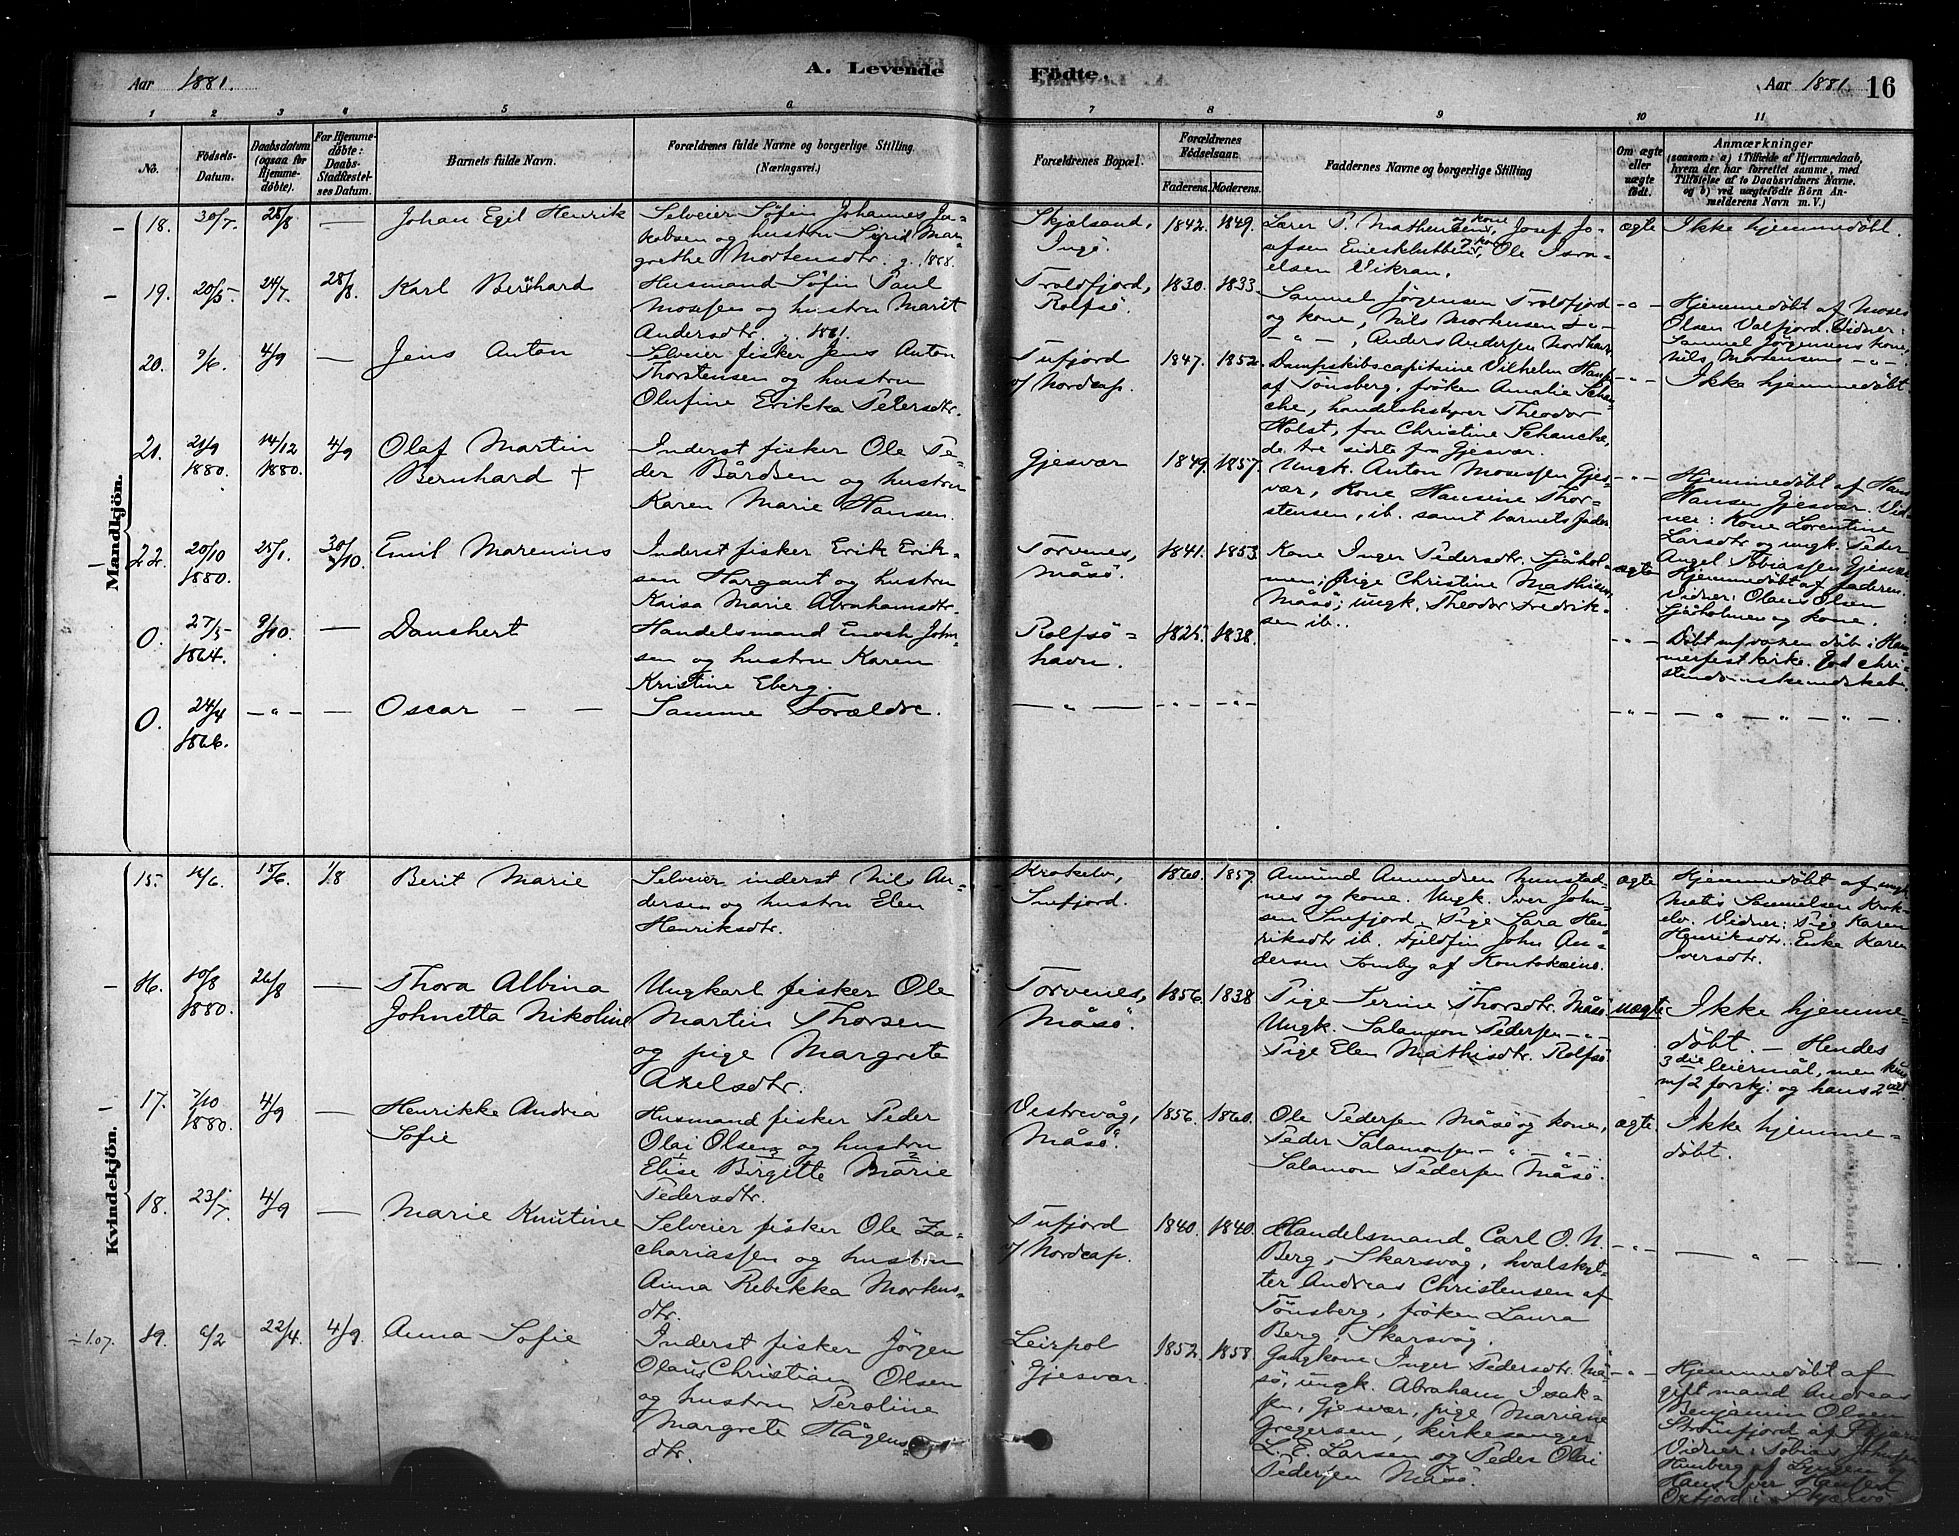 Aar 1881.
A. Levende
Födte.
Aar 1881.
16
1 2 3 4 5 6 7 8 9 10 11
No.
Födsels-Datum.
Daabsdatum (ogsaa for Hjemmedöbte).
For Hjemmedöbte: Daabs-Stadfæstelses Datum.
Barnets fulde Navn.
Forældrenes fulde Navne og borgerlige Stilling.
(Næringsvei.)
Forældrenes Bopæl.
Forældrenes Födselsaar.
Faderens. Moderens.
Faddernes Navne og borgerlige Stilling
Om ægte eller uægte födt.
Anmærkninger
(saasom: a) i Tilfælde af Hjemmedaab, hvem der har forrettet samme, med Tilföielse af to Daabsvidners Navne, og b) ved uægtefödte Börn Anmelderens Navn m. V.)
Mandkjön.
18. 30/7. 28/8 —
Johan Egil Henrik
Selveier Söfin Johannes Ja-
kobsen og hustru Sirid Mar-
grethe Mortensdtr. g. 1868.
Skjælsand,
Ingö.
1842. 1849.
Lærer P. Mathiesen og kone, Josef Jo-
sefsen Eineskletten og kone, Ole Isra-
elsen Vikran.
ægte
Ikke hjemmedöbt.
19. 20/5. 24/7. 28/8.
Karl Bernhard
Husmand Söfin Paul
Mosesen og hustru Marit
Andersdtr. g. 1861.
Troldfjord,
Rolfsö.
1830. 1833.
Samuel Jörgensen Troldfjord
og kone, Nils Mortensen
— " — , Anders Andersen Nordhavn
— " —
Hjemmedöbt af Moses
Olsen Valfjord. Vidner:
Samuel Jörgensens kone,
Nils Mortensens — " —
20. 9/6. 4/9 —
Jens Anton
Selveier fisker Jens Anton
Thorstensen og hustru
Olufine Erikka Petersdtr.
Tufjord
v/ Nordcap.
1847. 1852.
Dampskibscapitaine Vilhelm
af Tönsberg, fröken Amalie Schan-
che, handelsbestyrer Theodor
Holst, fru Christine Schanche,
de tre sidste fra Gjesvær.
— " —
Ikke hjemmedöbt.
21. 21/9 1880. 14/12 1880. 4/9
Olaf Martin
Bernhard †
Inderst fisker Ole Pe-
der Bårdsen og hustru
Karen Marie Hansen.
Gjesvær
1849. 1857.
Ungk. Anton Mosesen Gjes-
vær, Kone Hansine Thor-
stensen, ib. samt barnets fader
— " —
Hjemmedöbt af Hans
Hansen Gjesvær. Vid-
ner: Kone Lorentine
Larsdtr og ungk. Peder
Angel Tobiassen Gjesvær.
22. 20/10 1880. 25/1. 30/10.
Emil Marenius
Inderst fisker Erik Erik-
sen Hargaut og hustru
Kaisa Marie Abrahamsdtr.
Torvenes,
Måsö.
1841. 1853
Kone Inger Pedersdtr. Sjåhol-
men; pige Christine Mathisen
Måsö; ungk. Theodor Fredrik-
sen ib.
ægte
Hjemmedöbt af faderen.
Vidner: Olaus Olsen
Sjåholmen og kone.
0. 27/5 1864. 9/10. —
Danshert
Handelsmand Enoch John-
sen og hustru Karen
Kristine Eberg.
Rolfsö-
havn.
1825. 1838.
— " —
Döbt i Ham-
merfest kirke.
0. 24/4 1866. — " — —
Oscar — —
Samme Forældre.
— " — — " — — " —
— " — — " — " — .
Kvindekjön.
15. 14/6. 15/6. 1/8
Berit Marie
Selveier inderst Nils An-
dersen og hustru Elen
Henriksdtr.
Krokelv,
Snefjord.
1860. 1857.
Amund Amundsen Hunstad-
nes og kone. Ungk. Iver John-
sen Snefjord. Pige Sara Hen-
riksdtr ib. Fjeldfin John An-
dersen Somby af Koutokæino.
ægte
Hjemmedöbt af ungk
Matis Samuelsen Krok-
elv. Vidner: Pige Karen
Henriksdtr. Enke Karen
Iversdtr.
16. 10/8 1880. 26/8 —
Thora Albina
Johnetta Nikoline
Ungkarl fisker Ole
Martin Thorsen
og pige Margrete
Axelsdtr.
Torvenes,
Måsö.
1856. 1838
Pige Serine Thorsdtr. Måsö
Ungk. Salamon Pedersen — " —
Pige Elen Mathisdtr. Rolfsö
uægte
Ikke hjemme-
döbt. — Hendes
3die leiermål, men kun
m/ 2 forskj. og hans 2det.
17. 7/10 1880. 4/9 —
Henrikke Andrea
Sofie
Husmand fisker Peder
Olai Olsen og hustru
Elise Birgitte Marie
Pedersdtr.
Vestrevåg,
Måsö.
1856. 1860.
Ole Pedersen Måsö og kone,
Peder Salamonsen — " — " — .
Salamon Pedersen Måsö.
ægte
Ikke hjemme-
döbt.
18. 23/7. 4/9 —
Marie Knutine
Selveier fisker Ole Za-
chariassen og hustru
Anna Rebekka Morkus-
dtr.
Tufjord
v/ Nordcap.
1840. 1840.
Handelsmand Carl O. N.
Berg, Skarsvåg, hvalskyt-
ter Andreas Christensen af
Tönsberg, fröken Laura
Berg, Skarsvåg.
— " — — " — .
÷ 1.07.
19. 6/2 22/4. 4/9.
Anna Sofie
Inderst fisker Jörgen
Olaus Christian Olsen
og hustru Peroline
Margrete Hågens-
dtr.
Leirpol
Gjesvær.
1852. 1858
Gangkone Inger Pedersdtr. Må-
sö, ungk. Abraham Isak-
sen, Gjesvær, pige Mariane
Gregersen, kirkesanger
L. E. Larsen og Peder Olai
Pedersen Måsö.
— " —
Hjemmedöbt af
gift mand Andreas
Benjamin Olsen
Straumfjord af Skjærvö
Vidner: Tobias Johnsen
af Lyngen og
Hans Iver Hansen
Oxfjord i Skjærvö